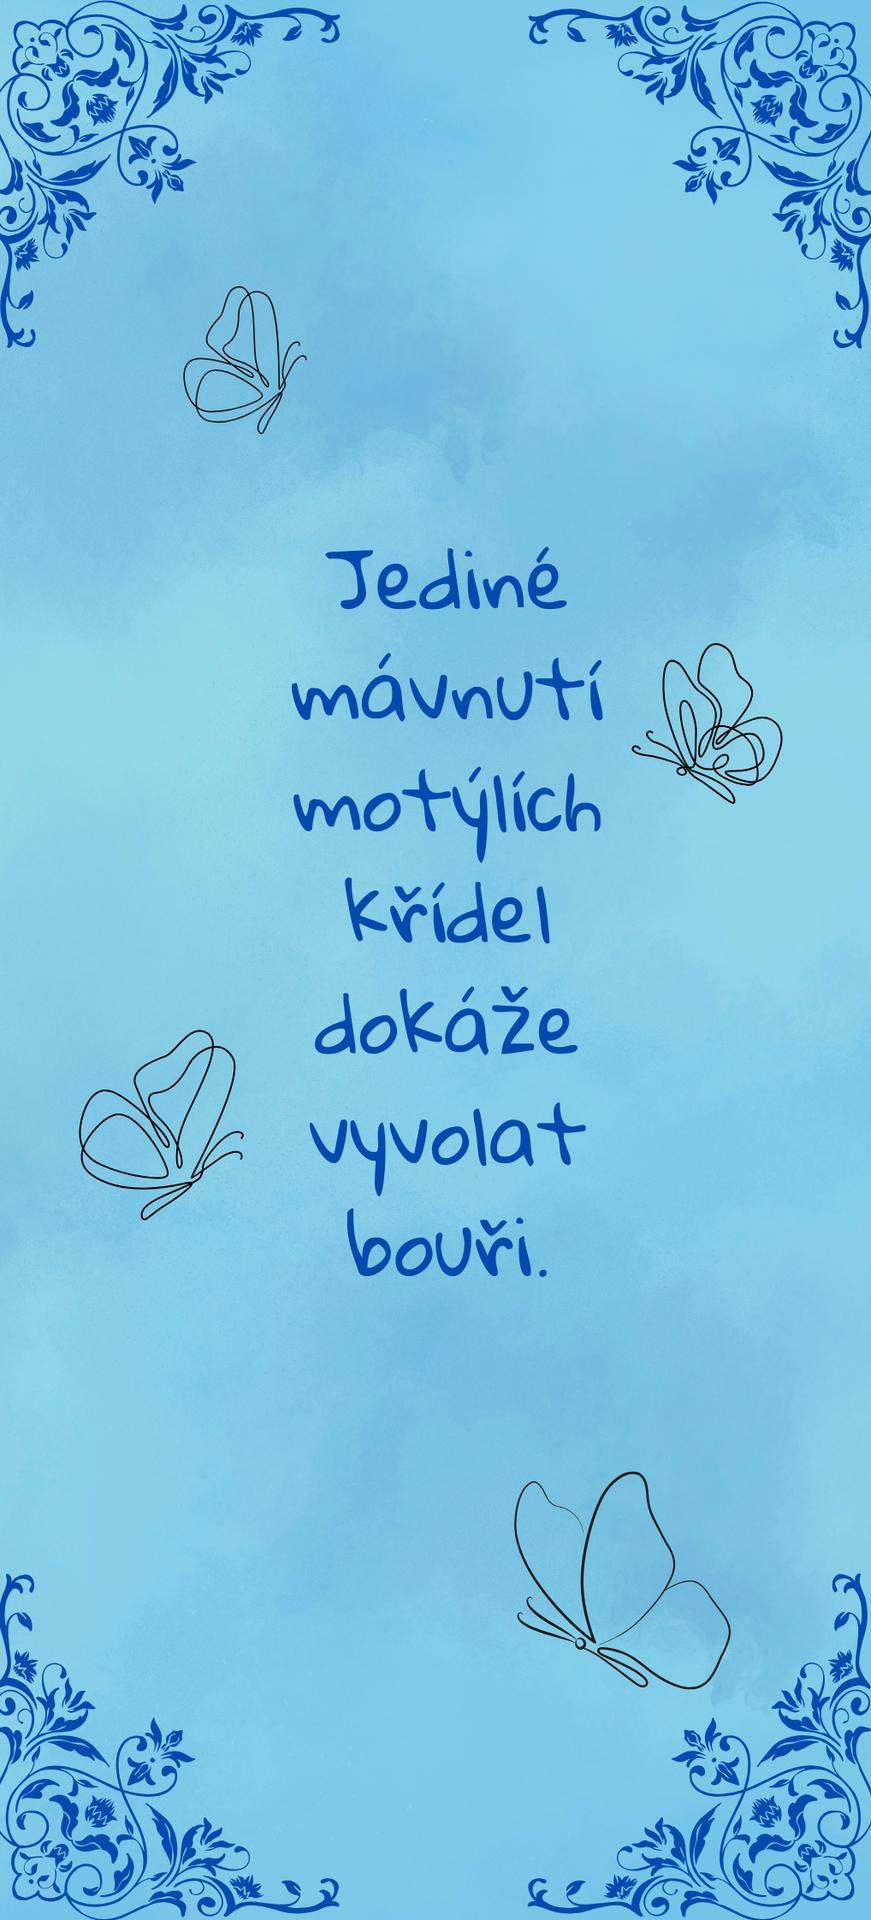 Jediné
mávnutí
motýlích
křídel
dokáže
vyvolat
bouři.